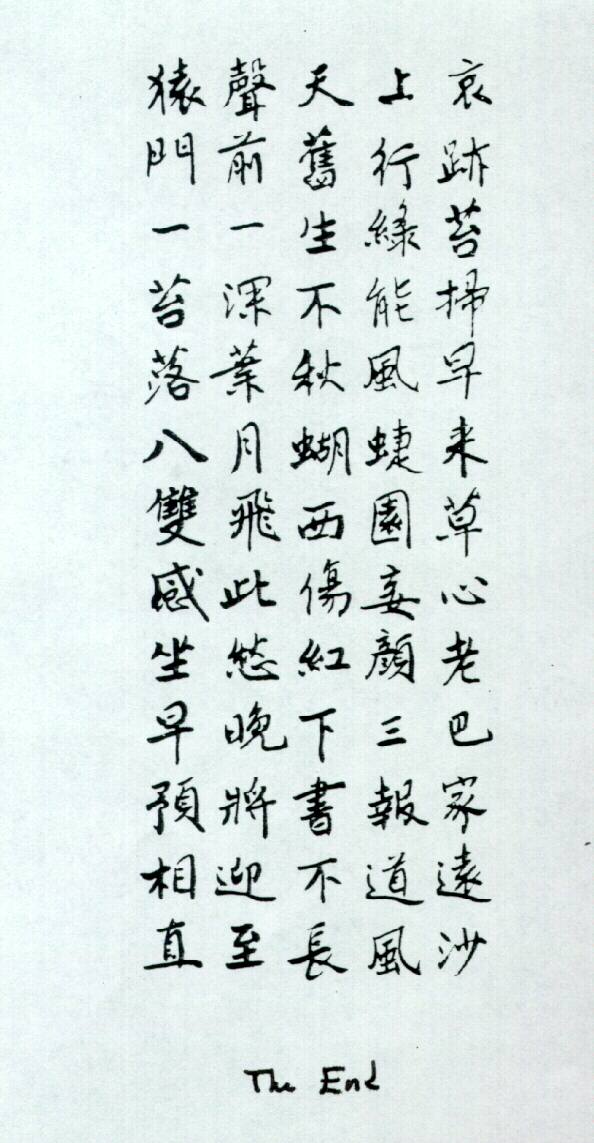 猿聲天上哀
門前舊行跡
一一生綠苔
苔深不能掃
落葉秋風早
八月蝴蜨来
雙飛西園草
感此傷妾心
坐愁紅顏老
早晚下三巴
預將書報家
相迎不道遠
直至長風沙
The End